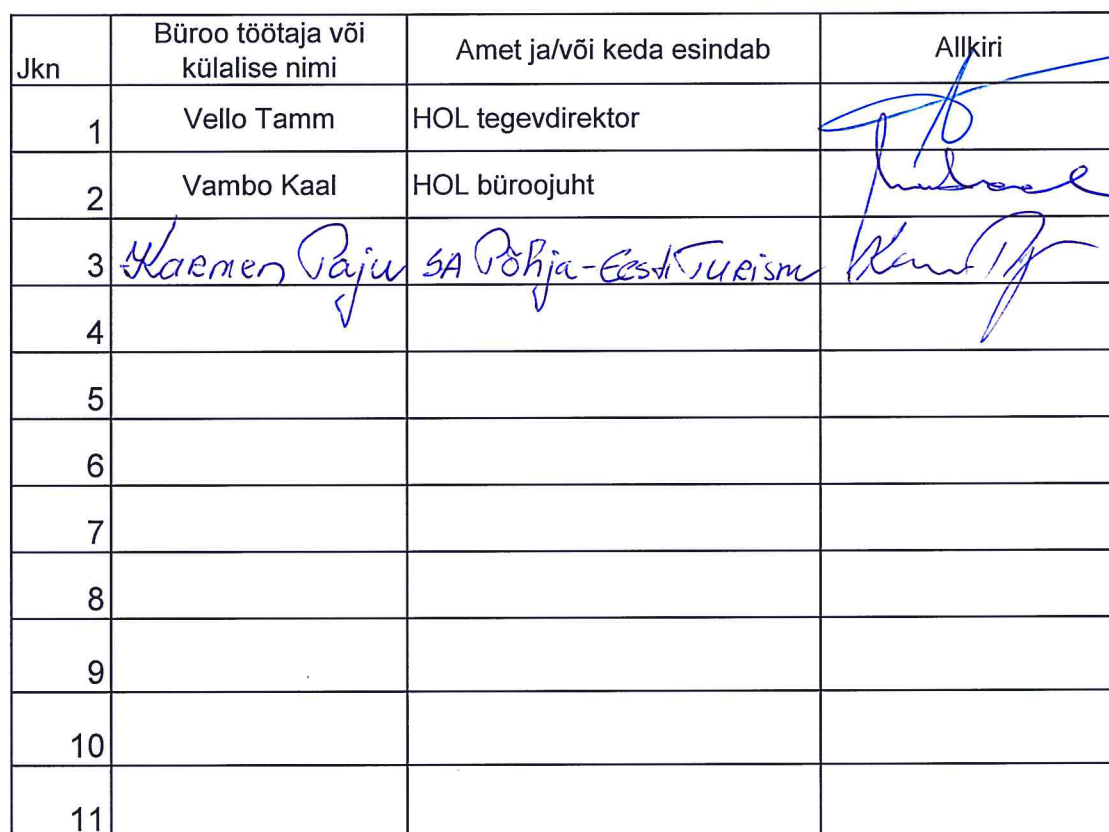 Jkn Büroo töötaja või külalise nimi Amet ja/või keda esindab Allkiri
1 Vello Tamm HOL tegevdirektor
2 Vambo Kaal HOL büroojuht
3 Karmen Paju SA Põhja-Eesti Turism
4
5
6
7
8
9
10
11